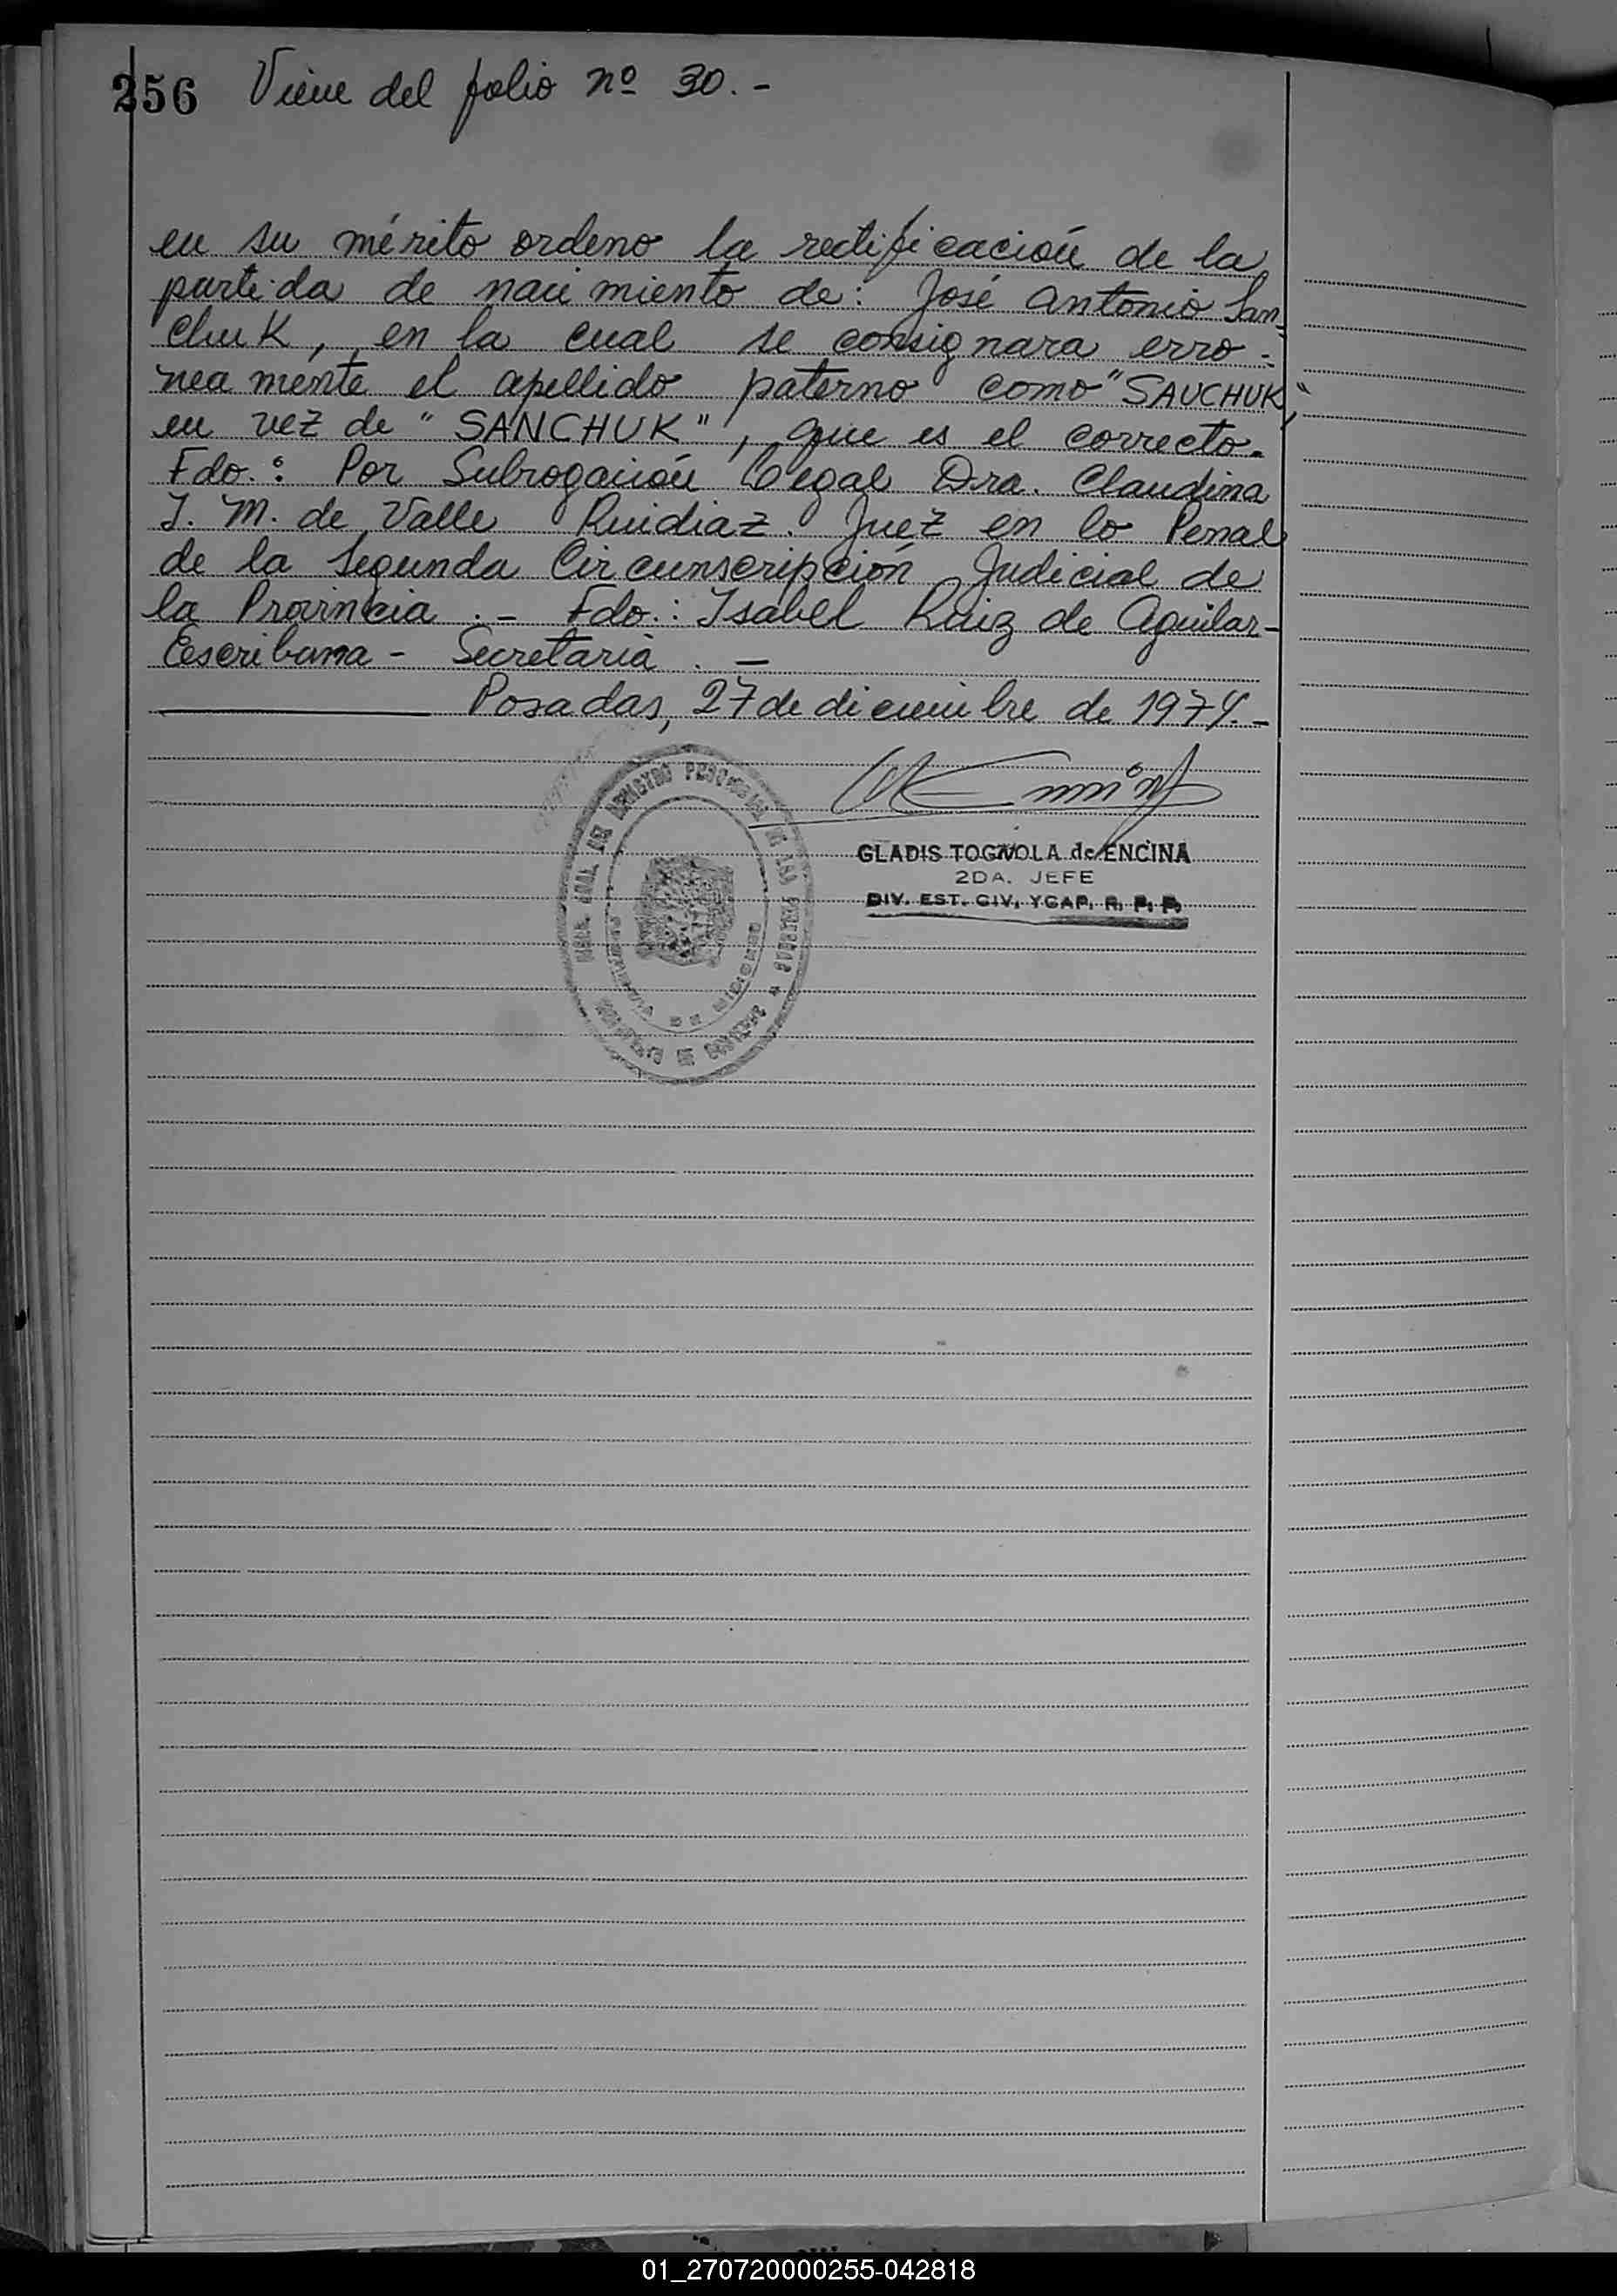 256 Viene del folio nº 30.-
en su mérito ordeno la rectificación de la
partida de nacimiento de: José Antonio San-
chuk, en la cual se consignara erro-
neamente el apellido paterno como "SAUCHUK",
en vez de "SANCHUK", que es el correcto.
Fdo.: Por Subrogación Legal Dra. Claudina
J. M. de Valle Ruidiaz. Juez en lo Penal
de la Segunda Circunscripción Judicial de
la Provincia.- Fdo.: Isabel Ruiz de Aguilar-
Escribana - Secretaria.-
Posadas, 27 de diciembre de 1974.-
GLADIS TOGNOLA de ENCINA
2DA. JEFE
DIV. EST. CIV, YCAP. R. P. P.
01_270720000255-042818